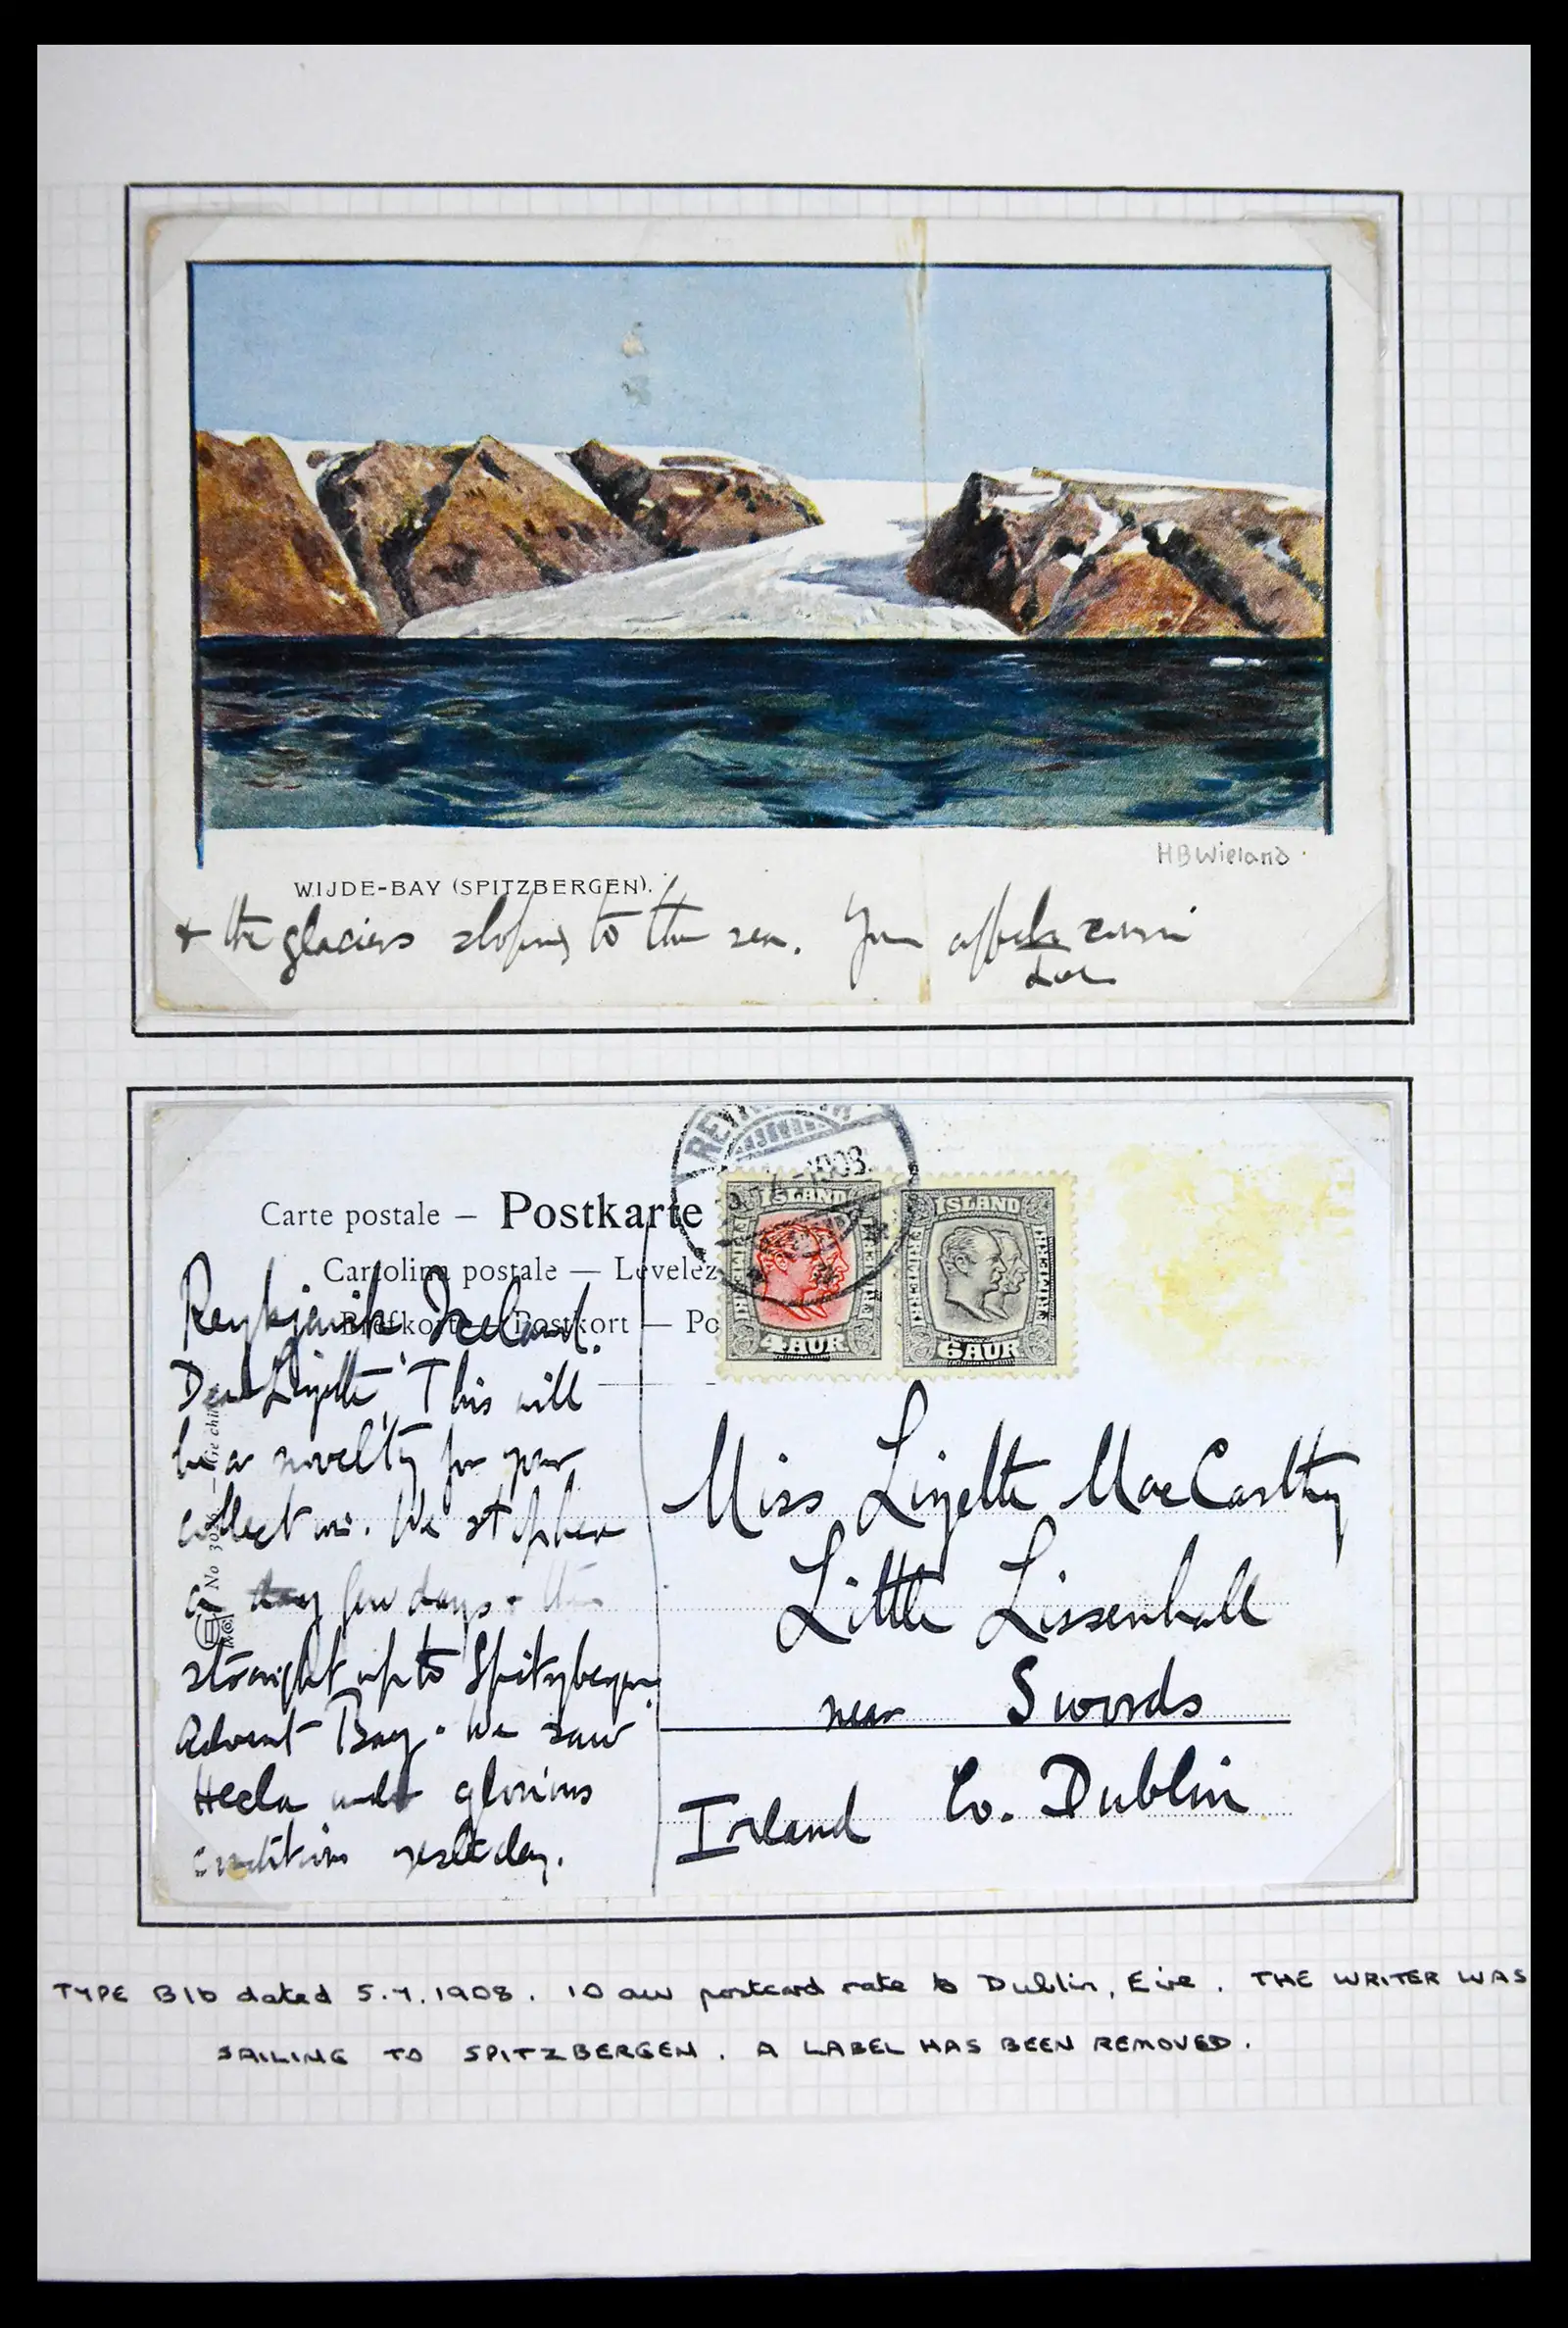 HBWieland
WIJDE-BAY (SPITZBERGEN).
+ the glaciers sloping to the sea. Your affecte cousin
Carte postale — Postkarte
Cartolina postale — Levelez
Briefkort — Postkort — Po
REYKJAVIK
5.7.1908
ISLAND
FRIMERKI
4 AUR
ISLAND
FRIMERKI
6 AUR
Reykjavik Iceland.
Dear Lizette, This will
be a novelty for your
collection. We stop here
a few days + then
straight up to Spitzbergen,
Advent Bay. We saw
Hecla under glorious
conditions yesterday.
No
Miss Lizette MacCarthy
Little Lissenhall
near Swords
Co. Dublin
Ireland
TYPE B1b dated 5.7.1908. 10 aur postcard rate to Dublin, Eire. THE WRITER WAS
SAILING TO SPITZBERGEN. A LABEL HAS BEEN REMOVED.